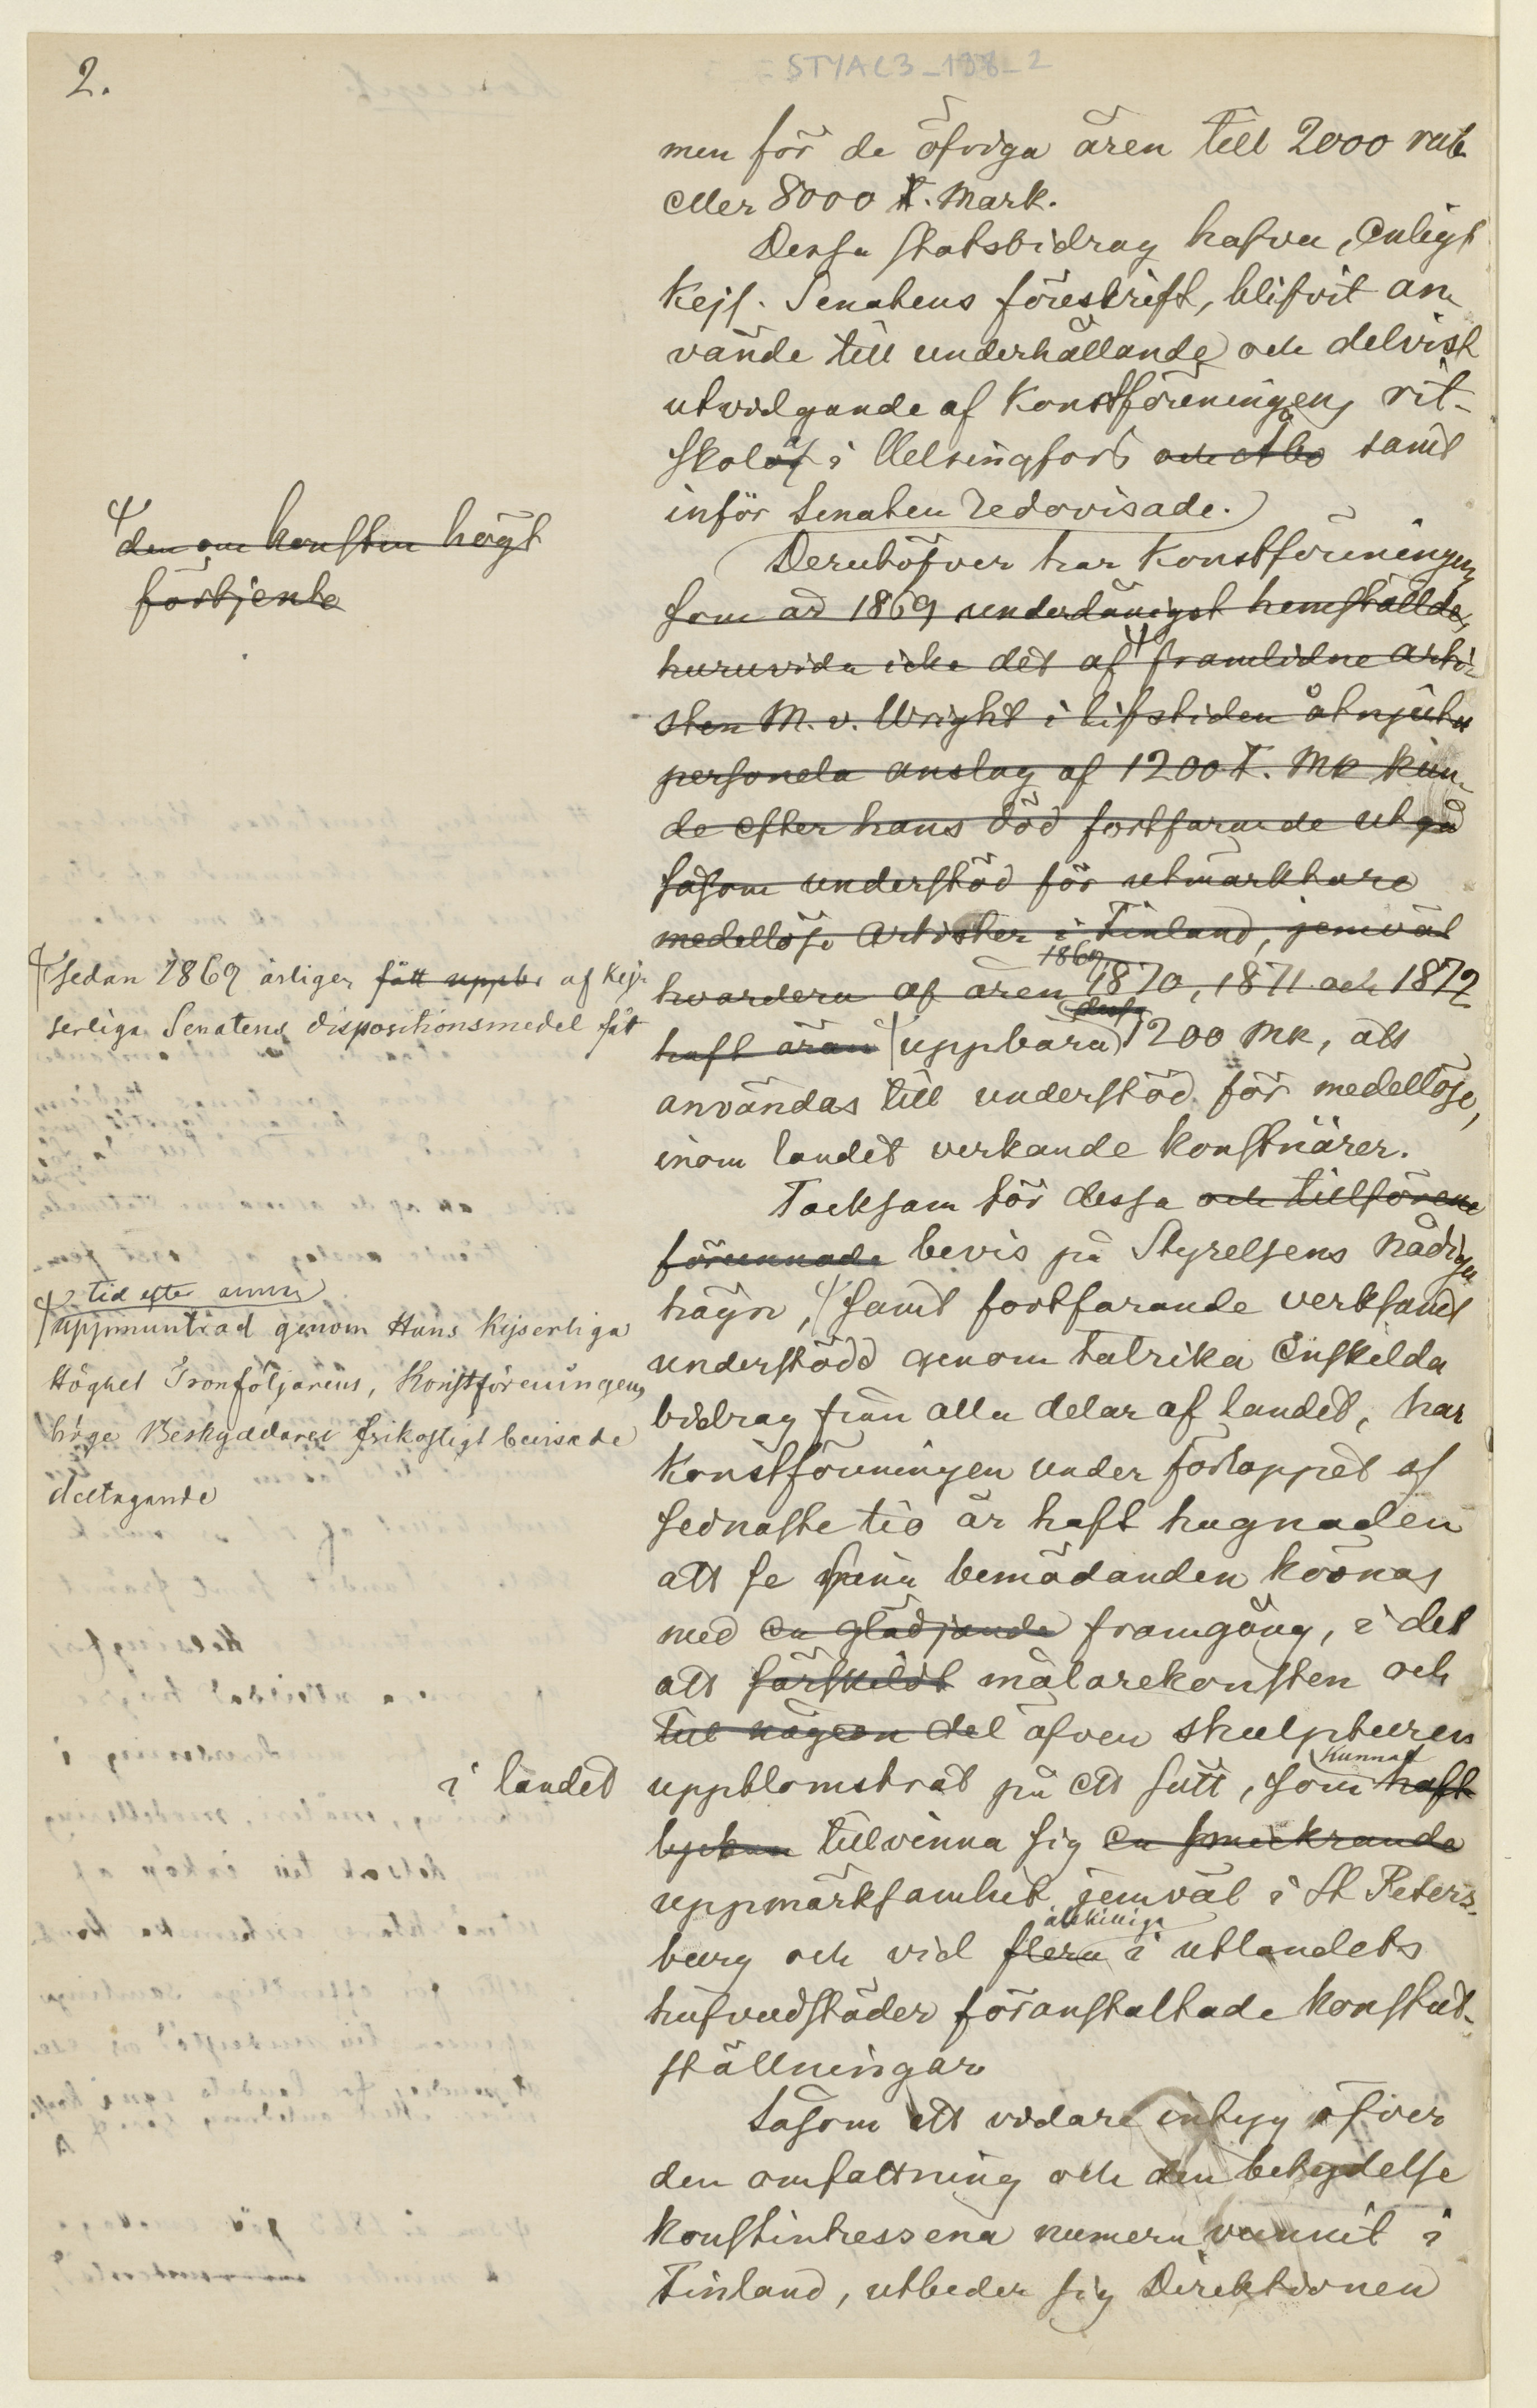 2.
STYAL3_198_2
men för de öfriga åren till 2000 rub
eller 8000 F. Mark.
Dessa statsbidrag hafva, enligt
Kejs. Senatens föreskrift, blifvit an-
vände till underhållande och delvist
utvidgande af Konstföreningens rit-
skolor i Helsingfors och Åbo samt
inför Senaten redovisade.
Derutöfver har Konstföreningen,
den om konsten högt
förtjente
som år 1869 underdånigst hemställde,
huruvida icke det af framlidne arti-
sten M. v. Wright i lifstiden åtnjutna
personela anslag af 1200 F. Mk kun-
de efter hans död fortfarande utgå
såsom understöd för utmärktare
medellöse artister i Finland, jemväl
1869,
hvardera af åren 1870, 1871 och 1872
sedan 1869 årligen fått uppbär af Kej-
serliga Senatens dispositionsmedel fått
haft äran uppbära dessa 1200 Mk, att
användas till understöd för medellöse,
inom landet verkande konstnärer.
Tacksam för dessa och tillförene
förunnade bevis på Styrelsens nådiga
tid efter annan
uppmuntrad genom Hans Kejserliga
Höghet Tronföljarens, Konstföreningens
höge Beskyddares frikostigt bevisade
deltagande
hägn, samt fortfarande verksamt
understödd genom talrika enskilda
bidrag från alla delar af landet, har
Konstföreningen under förloppet af
sednaste tio år haft hugnaden
att se sina bemödanden krönas
med en glädjande framgång, i det
att särskildt målarekonsten och
till någon del äfven skulpturen
i landet uppblomstrat på ett sätt, som haft kunnat
lyckan tillvinna sig en smickrande
uppmärksamhet jemväl i St Peters-
burg och vid flera åtskilliga i utlandets
hufvudstäder föranstaltade konstut-
ställningar
Såsom ett vidare intyg öfver
den omfattning och den betydelse
konstintressena numera vunnit i
Finland, utbeder sig Direktionen